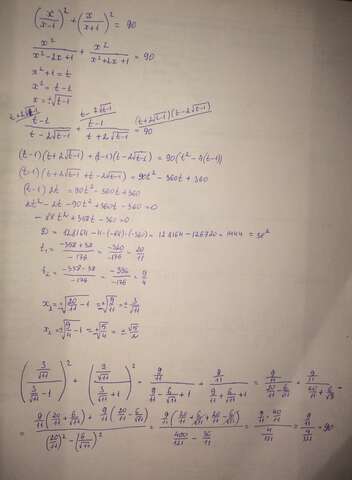 (x/(x-1))² + (x/(x+1))² = 90
x²/(x²-2x+1) + x²/(x²+2x+1) = 90
x²+1=t
x²=t-1
x=±√(t-1)
t+2√(t-1) t-2√(t-1) (t+2√(t-1))(t-2√(t-1))
(t-1)/(t-2√(t-1)) + (t-1)/(t+2√(t-1)) = 90
(t-1)(t+2√(t-1)) + (t-1)(t-2√(t-1)) = 90(t²-4(t-1))
(t-1)(t+2√(t-1)+t-2√(t-1)) = 90t²-360t+360
(t-1)2t = 90t²-360t+360
2t²-2t-90t²+360t-360=0
-88t²+358t-360=0
D = 128164-4·(-88)·(-360) = 128164-126720 = 1444 = 38²
t₁ = (-358+38)/(-176) = (-320)/(-176) = 20/11
t₂ = (-358-38)/(-176) = (-396)/(-176) = 9/4
x₁=±√(20/11-1) = ±√(9/11) = ±3/√11
x₂=±√(9/4-1) = ±√(5/4) = ±√5/2
((3/√11)/(3/√11-1))² + ((3/√11)/(3/√11+1))² = (9/11)/(9/11-6/√11+1) + (9/11)/(9/11+6/√11+1) = (9/11)/(20/11-6/√11) + (9/11)/(20/11+6/√11) =
= (9/11(20/11+6/√11)+9/11(20/11-6/√11))/((20/11)²-(6/√11)²) = (9/11(20/11+6/√11+20/11-6/√11))/(400/121-36/11) = (9/11·40/11)/(4/121) = 90